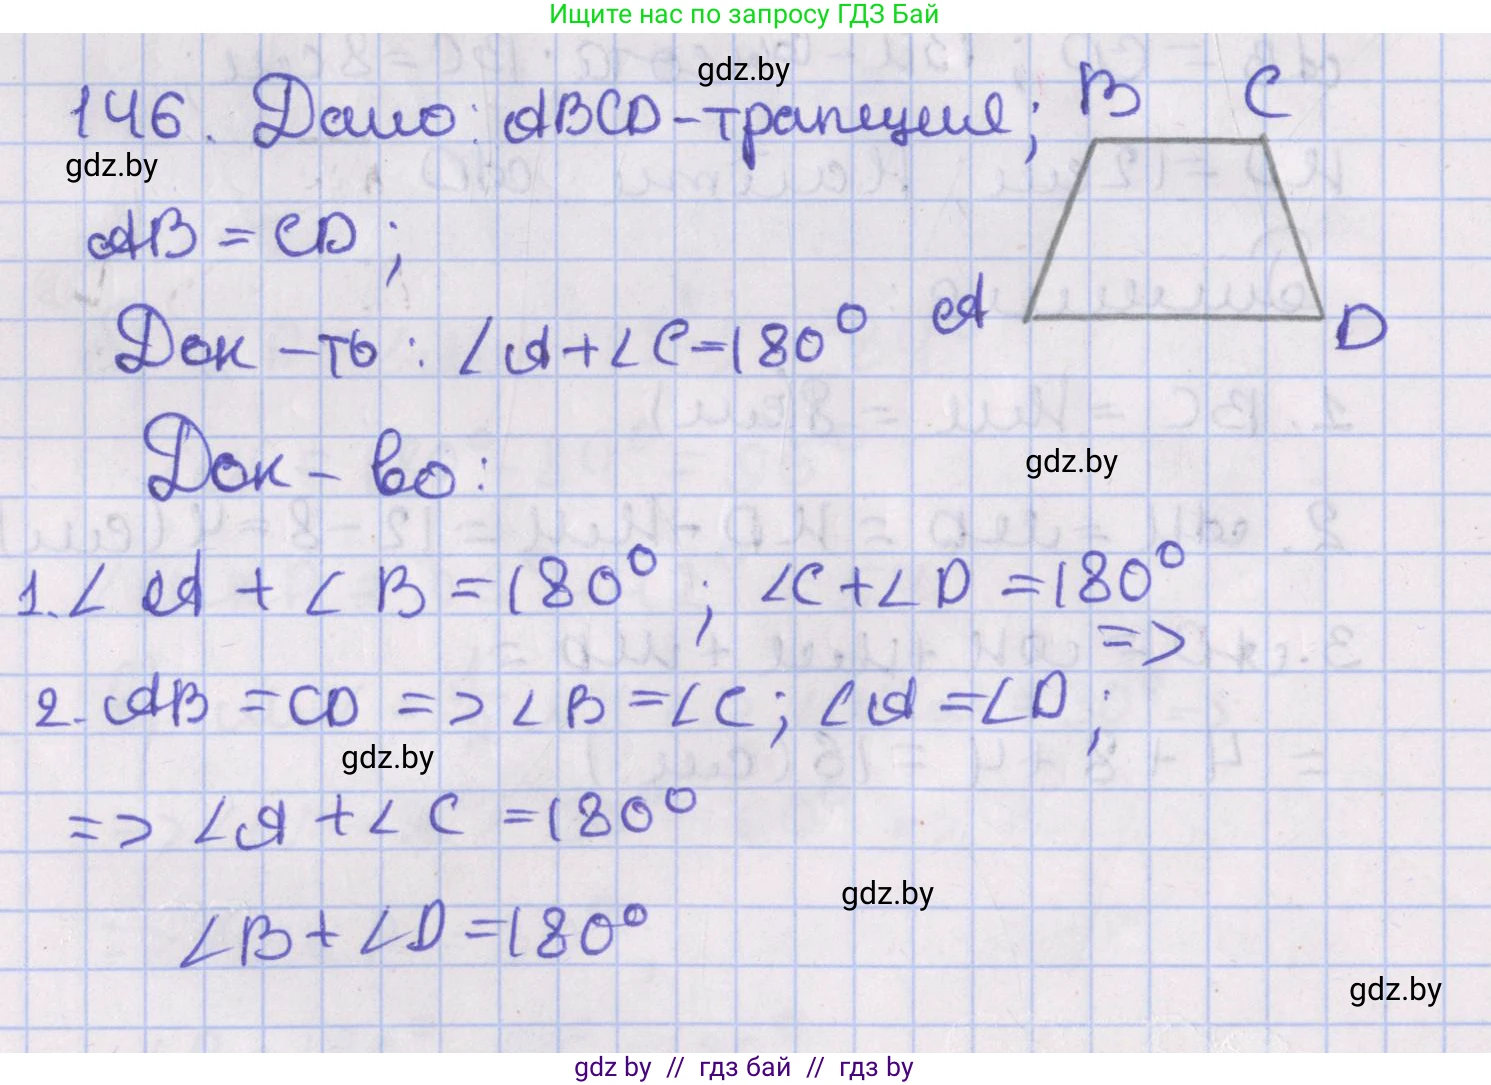 Ищите нас по запросу ГДЗ Бай
gdz.by
146. Дано: ABCD - трапеция; B C
gdz.by
AB = CD;
A D
Док-ть: ∠A + ∠C = 180°
Док-во:
gdz.by
1. ∠A + ∠B = 180°; ∠C + ∠D = 180°
=>
2. AB = CD => ∠B = ∠C; ∠A = ∠D;
gdz.by
=> ∠A + ∠C = 180°
gdz.by
∠B + ∠D = 180°
gdz.by
gdz by // гдз бай // гдз by